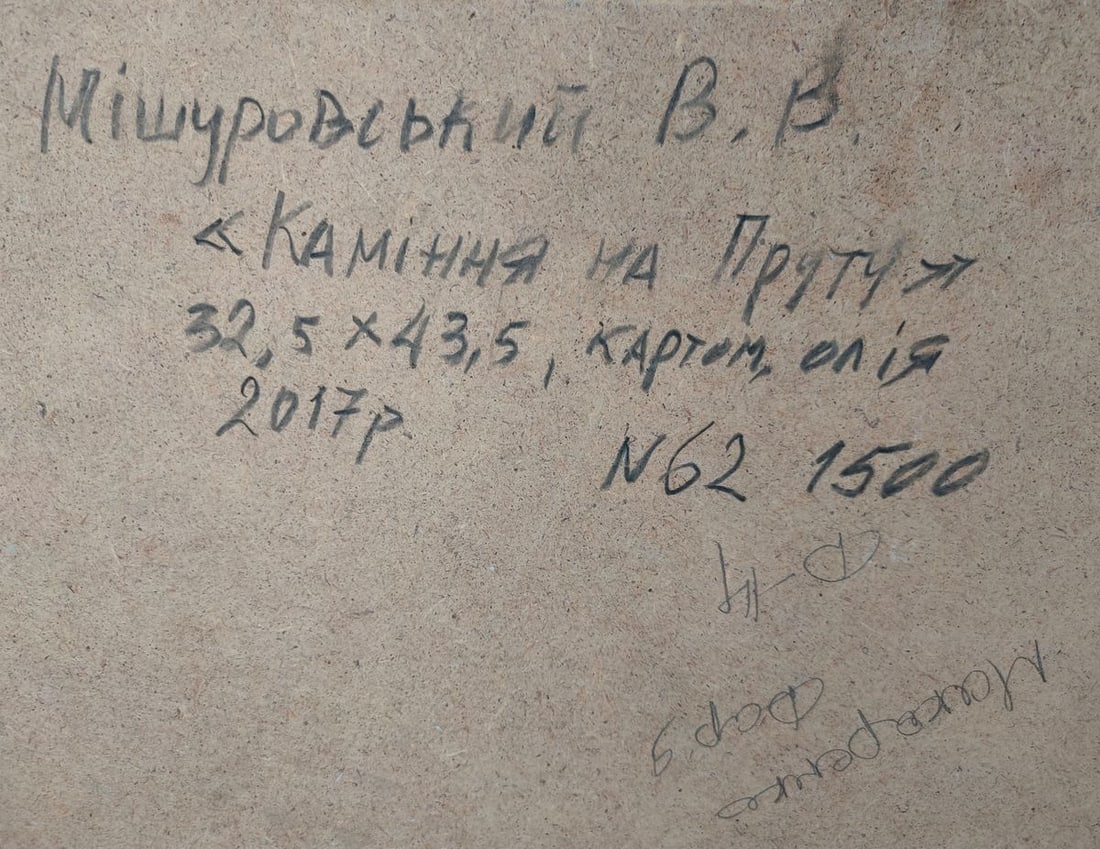 Мішуровський В. В.
«Каміння на Пруту»
32,5×43,5, картон, олія
2017р
N62 1500
Макаренко
Дар'я